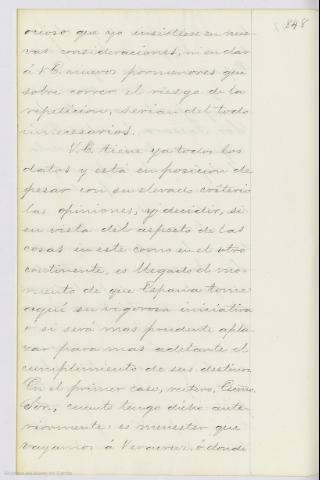 848
ocioso que yo insistiese en nue-
vas consideraciones, ni en dar
á V. E. nuevos pormenores que
sobre correr el riesgo de la
repeticion, serian del todo
innecesarios.
V. E. tiene ya todos los
datos y está en posicion de
pesar con su elevado criterio
las opiniones, y decidir, si
en vista del aspecto de las
cosas en este como en el otro
continente, es llegado el mo-
mento de que España tome
aquí su vigorosa iniciativa
o si será mas prudente apla-
zar para mas adelante el
cumplimiento de sus destinos.
En el primer caso, reitero, Escmo.
Sor., cuanto tengo dicho ante-
riormente: es menester que
vayamos á Veracruz, ó donde